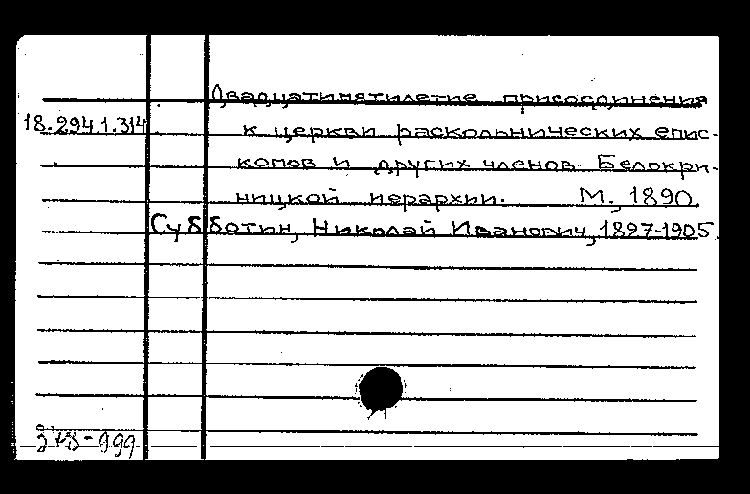 Двадцатипятилетие присоединения
18.294.1.314 к церкви раскольнических епис-
копов и других членов Белокри-
ницкой иерархии. М., 1890.
Субботин, Николай Иванович, 1897-1905.
378-999